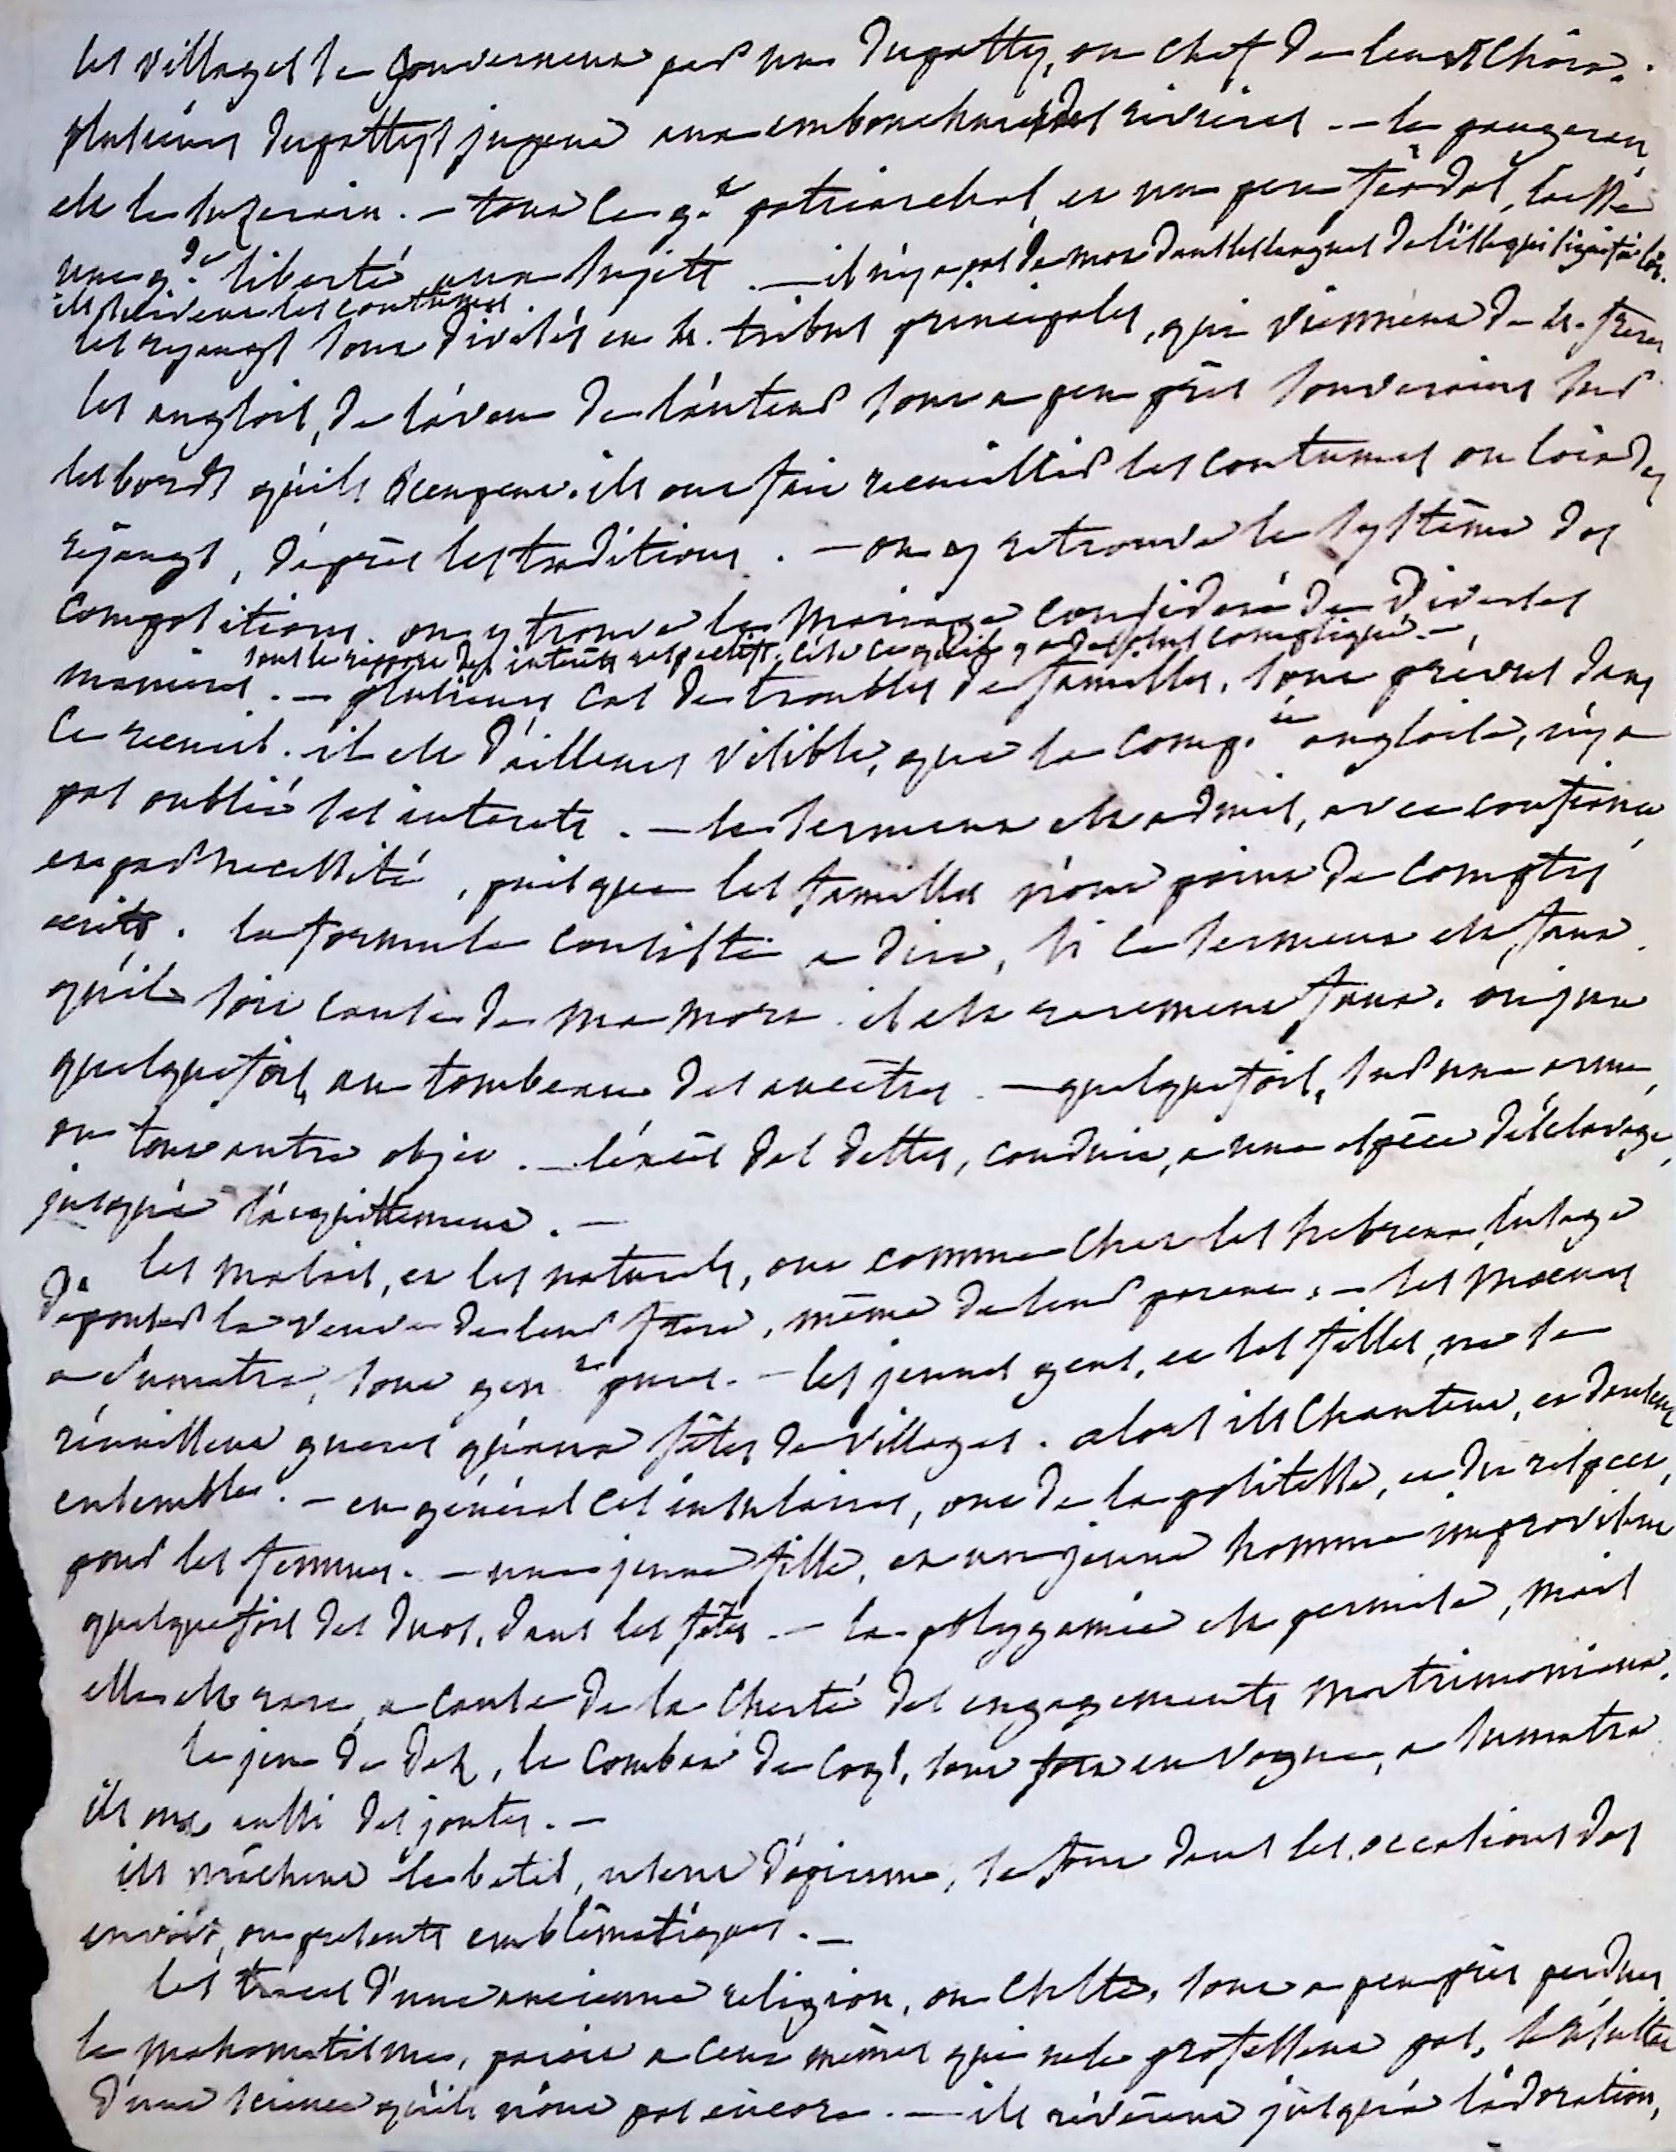 les villages se gouvernent par un dupatty, ou chef de leur choix.
plusieurs dupattys jugent aux embouchures des rivieres. — le pangeran
est le suzerain. — tout ce g.t patriarchal, et un peu féodal, laisse
une g.de liberté aux sujets. — il n'y a pas de mot dans les langues de l'isle qui signifie loi.
ils suivent les coutumes
les rejangs sont divisés en 4. tribus principales, qui viennent de 4. freres
les anglois, de l'aveu de l'auteur sont a peu près souverains sur
les bords qu'ils occupent. ils ont fait recueillir les coutumes ou loix des
rejangs, d'après les traditions. — on y retrouve le système des
compositions. on y trouve le mariage considéré de diverses
sous le rapport des intérêts respectifs, c'est ce qu'il y a de plus compliqué. —
manieres. — plusieurs cas de troubles de familles, sont prévus dans
ce recueil. il est d'ailleurs visible, que la comp.ie angloise, n'y a
pas oublié ses interets. — le serment est admis, avec confiance
et par necessité, puisque les familles n'ont point de comptes
écrits. la formule consiste a dire, si ce serment est faux
qu'il soit cause de ma mort. il est rarement faux. on jure
quelquefois, au tombeau des ancêtres. — quelquefois, sur une arme,
ou tout autre objet. — l'excès des dettes, conduit, a une espèce d'esclavage,
jusqu'à l'acquittement. —
les malais, et les naturels, ont comme chez les hebreux, l'usage
d'épouser la veuve de leur frere, même de leur parent. — les moeurs
a Sumatra, sont gen.t pures. — les jeunes gens, et les filles, ne se
réunissent gueres qu'aux fêtes de villages. alors ils chantent, et dansent
ensemble. — en général ces insulaires, ont de la politesse, et du respect,
pour les femmes. — une jeune fille, et un jeune homme improvisent
quelquefois des duos, dans les fêtes. — la polygamie est permise, mais
elle est rare, a cause de la cherté des engagements matrimoniaux.
le jeu de dez, le combat de coqs, sont fort en vogue, a sumatra
ils ont aussi des joutes. —
ils mâchent le betel, usent d'opium, se font dans les occasions des
envois, ou presents emblématiques. —
les traces d'une ancienne religion, ou culte, sont a peu près perdues
le mahometisme, paroit a ceux mêmes qui ne le professent pas, le résultat
d'une science qu'ils n'ont pas encore. — ils révèrent jusqu'à l'adoration,